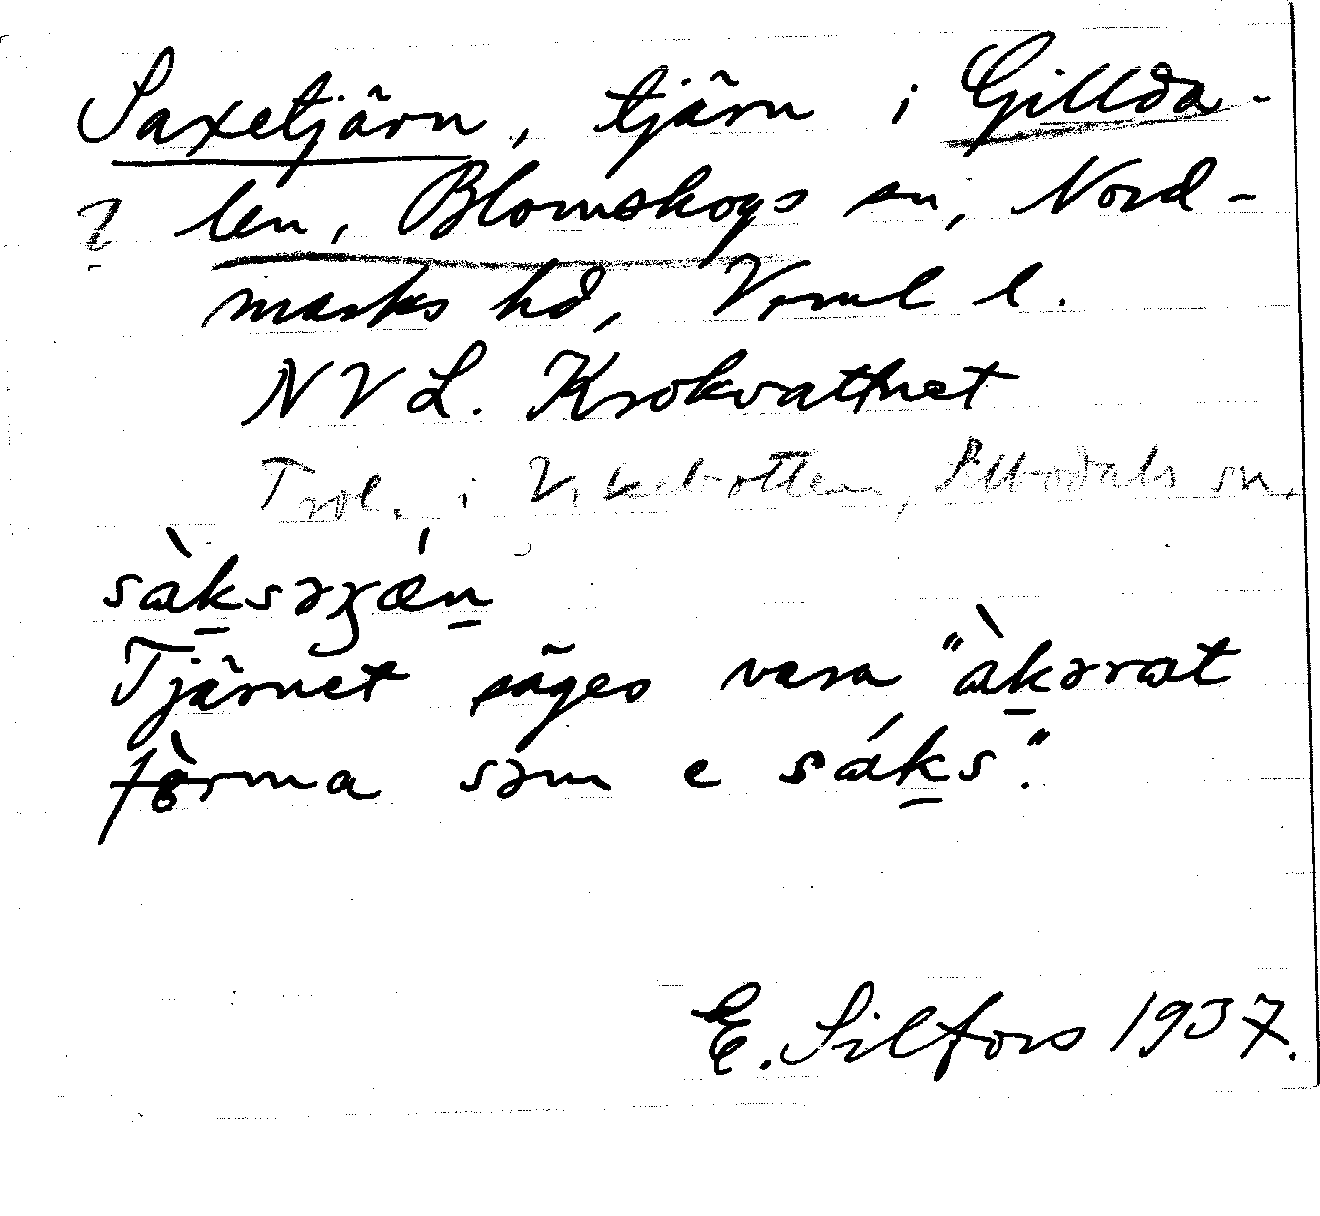 Saxetjärn, tjärn i Gillda-
? len, Blomskogs sn, Nord-
marks hd, Vrml l.
N V L. Krokvattnet
Trol. i sn.
sàk̲səʒǽn̲
Tjärnet säges vara "àk̲ərat
fòrma səm e sák̲s".
E. Silfors 1937.